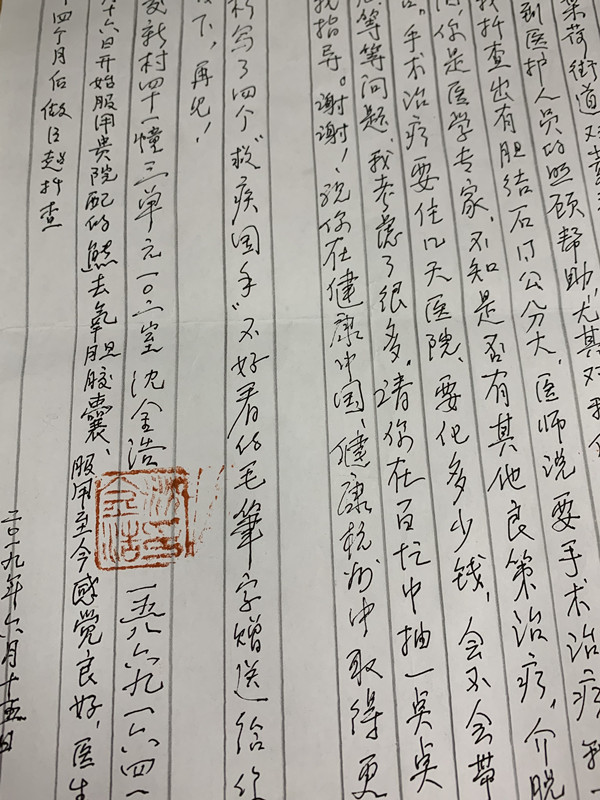 采荷街道
到医护人员的照顾帮助，尤其对
我抖查出有胆结石付公分大，医师说要手术治疗，
你是医学专家，不知是否有其他良策治疗，介脱
手术治疗要住几天医院、要化多少钱，会不会带
等等问题，我考虑了很多，请你在百忙中抽一点点
我指导。谢谢！祝你在健康中国、健康杭州中取得更
写了四个"救疾国手"不好看的毛筆字赠送给你
下，再见！
新村四十一幢三单元一〇二室 沈金浩 一五八六九一六四一
沈金浩印
十六日开始服用贵院配的熊去氧胆胶囊、服用至今感觉良好，医生
四个月后做B超抖查
二〇一九年六月十五日